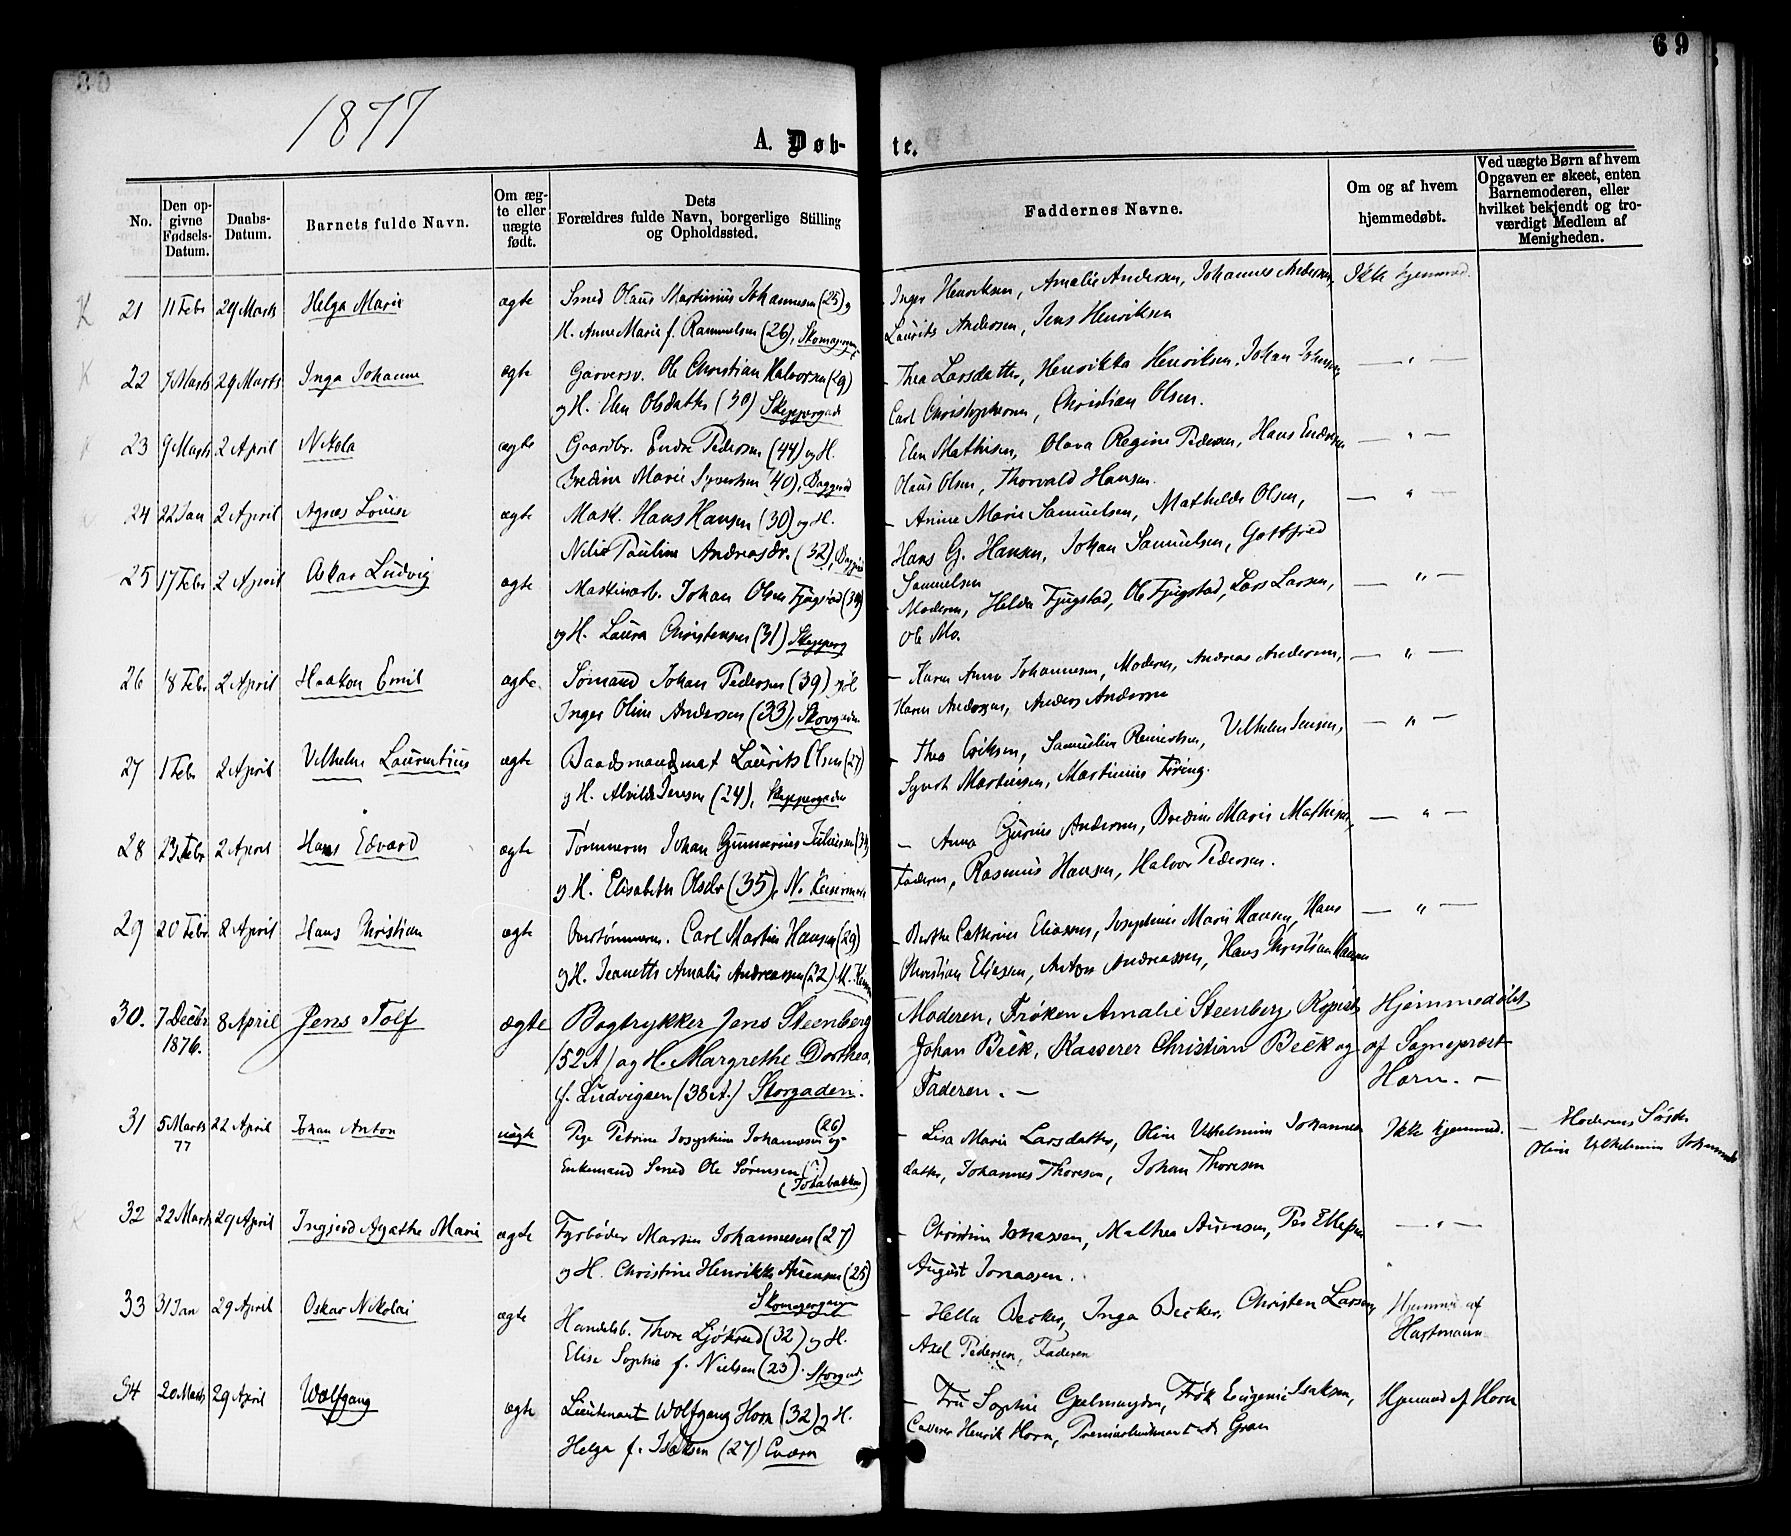 69
1877
A. Døb-
te.
No.
Den opgivne Fødsels-Datum.
Daabs-Datum.
Barnets fulde Navn.
Om ægte eller uægte født.
Dets Forældres fulde Navn, borgerlige Stilling og Opholdssted.
Faddernes Navne.
Om og af hvem hjemmedøbt.
Ved uægte Børn af hvem Opgaven er skeet, enten Barnemoderen, eller hvilket bekjendt og troværdigt Medlem af Menigheden.
K 21 11 Febr 29 Marts Helga Marie ægte Smed Olaus Martinius Johannesen (25) og Inger Henriksen, Amalie Andersen, Johannes Andersen, Ikke hjemmed.
H. Anne Marie f. Rammelsen (26), Laurits Andersen, Jens Henriksen
K 22 7 Marts 29 Marts Inga Johanne ægte Garversv. Ole Christian Halvorsen (29) Thea Larsdatter, Henrikka Henriksen, Johan Johnsen — " —
og H. Elen Olsdatter (30) Skeppergade Carl Christophersen, Christian Olsen.
23 9 Marts 2 April Nikola ægte Gaardbr. Endre Pedersen (44) og H. Elen Mathisen, Olava Regine Pedersen, Hans Endresen — " —
Bredine Marie Syvertsen (40), Olaus Olsen, Thorvald Hansen.
24 22 Jan 2 April Agnes Louise ægte Mask. Hans Hansen (30) og H. — Anine Marie Samuelsen, Mathilde Olsen, — " —
Pauline Andreasdr. (32), Hans G. Hansen, Johan Samuelsen, Gottfried
Samuelsen
25 17 Febr 2 April Oskar Ludvig ægte Maskinarb. Johan Olsen Fjugstad (30) Moderen, Helda Fjugstad, Ole Fjugstad, Lars Larsen, — " —
og H. Laura Christensen (31) Skepperg Ole Mo.
26 8 Febr 2 April Haakon Emil ægte Sømand Johan Pedersen (39) og H. — Karen Anne Johannesen, Moderen, Andreas Andersen, — " —
Inger Oline Andersen (33), Skovgaden Karen Andersen, Anders Andersen
27 1 Febr 2 April Vilhelm Laurentius ægte Baadsmandsmat Laurits Olsen (27) — Thea Eriksen, Samueline Reinertsen, Vilhelm Jensen, — " —
og H. Alvilde Jensen (24), Skeppergaden Syvert Martinsen, Martinius Föring.
28 23 Febr 2 April Hans Edvard ægte Tømmerm Johan Gunnerius Juliussen — Anna Gurine Andersen, Bredine Marie Mathisen, — " —
og H. Elisabeth Olsdr (35), N. Keisermen Faderen, Rasmus Hansen, Halvor Pedersen.
29 20 Febr 8 April Hans Christian ægte Overtømmerm. Carl Martin Hansen (29) — Berthe Cathrine Eliassen, Josephine Marie Hansen, Hans — " —
og H. Jeanette Amalie Andreassen (22) Christian Eliassen, Anton Andreassen, Hans Christian Hansen
30. 7 Decbr 1876. 8 April Jens Tolf ægte Bogtrykker Jens Steenberg — Moderen, Frøken Amalie Steenberg, Kopist Hjemmedøbt
(52 A) og H. Margrethe Dorthea, Johan Beck, Kasserer Christian Beck og af Sognepræst
f. Ludvigsen (38 A.) Storgaden. Faderen. — Horn. —
31 5 Marts 77 22 April Johan Anton uægte Pige Petrine Josephine Johannesen (26) og — Lisa Marie Larsdatter, Oline Vilhelmine Johannes- Ikke hjemmed. — Moderens Søster
Enkemand Smed Ole Sørensen (?) datter, Johannes Thoresen, Johan Thoresen Oline Vilhelmine Johannesd
32 22 Marts 29 April Ingjerd Agathe Marie ægte Fyrbøder Martin Johannesen (27) — Christine Jonassen, Mathea Aunesen, Per Ellefsen — " —
og H. Christine Henrikke Aunesen (25) August Jonassen.
Skomagergangen
33 31 Jan 29 April Oskar Nikolai ægte Handelsb. Thore Ljøkrud (32) og H. — Hella Becker, Inga Becker, Christen Larsen, Hjemme af
Elise Sophie f. Nielsen (23). Storgade Axel Pedersen, Faderen Hartmann
34 20 Marts 29 April Wolfgang ægte Lieutenant Wolfgang Horn (32) og H. — Fru Sophie Gjelmeyden, Frøk Eugenie Isaksen, Hjemmed af Horn
Helga f. Isaksen (27) Henrik Horn, Premierlieutenant Gran